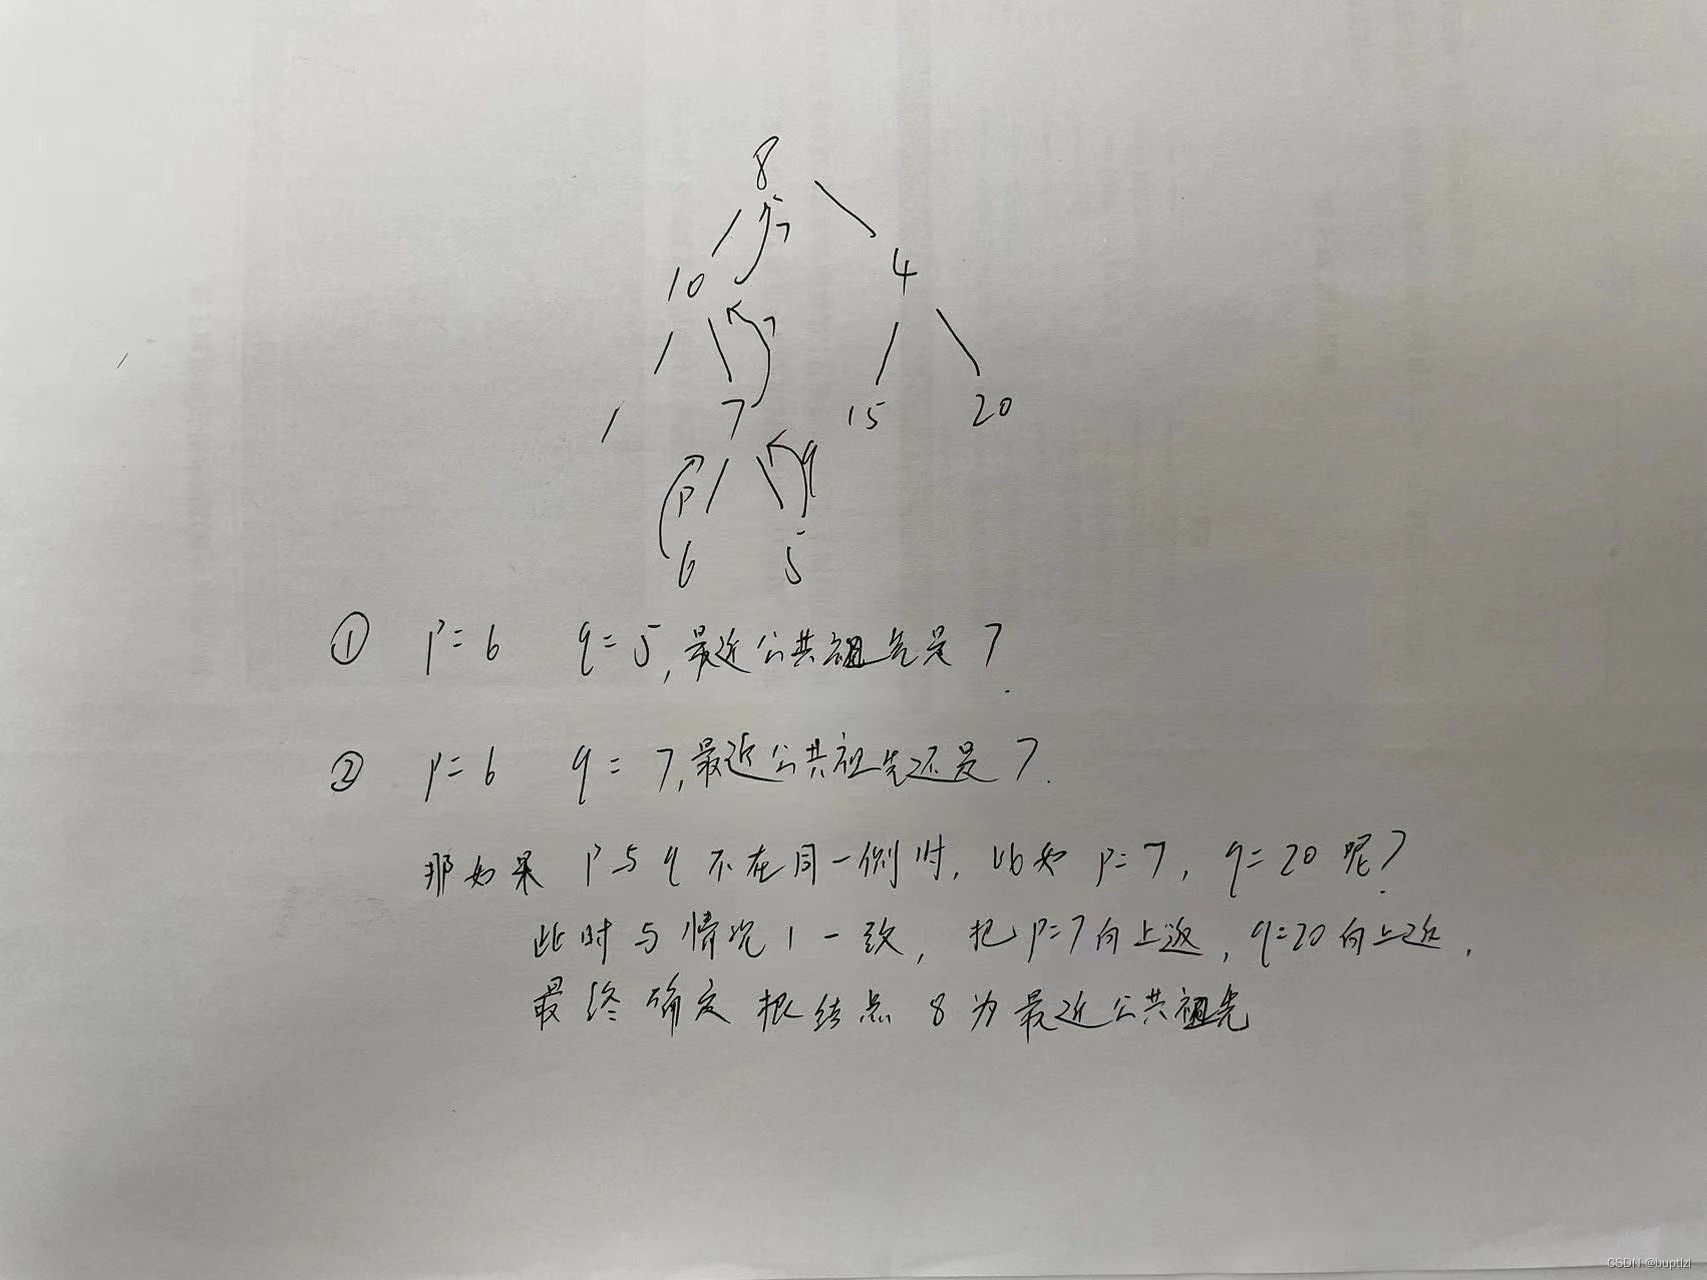 8
7
10 4
7
1 7 15 20
p q
6 5
① p=6 q=5,最近公共祖先是7.
② p=6 q=7,最近公共祖先还是7.
那如果p与q不在同一侧时,比如p=7,q=20呢?
此时与情况1一致,把p=7向上返,q=20向上返,
最终确定根结点8为最近公共祖先
CSDN @buptlzl